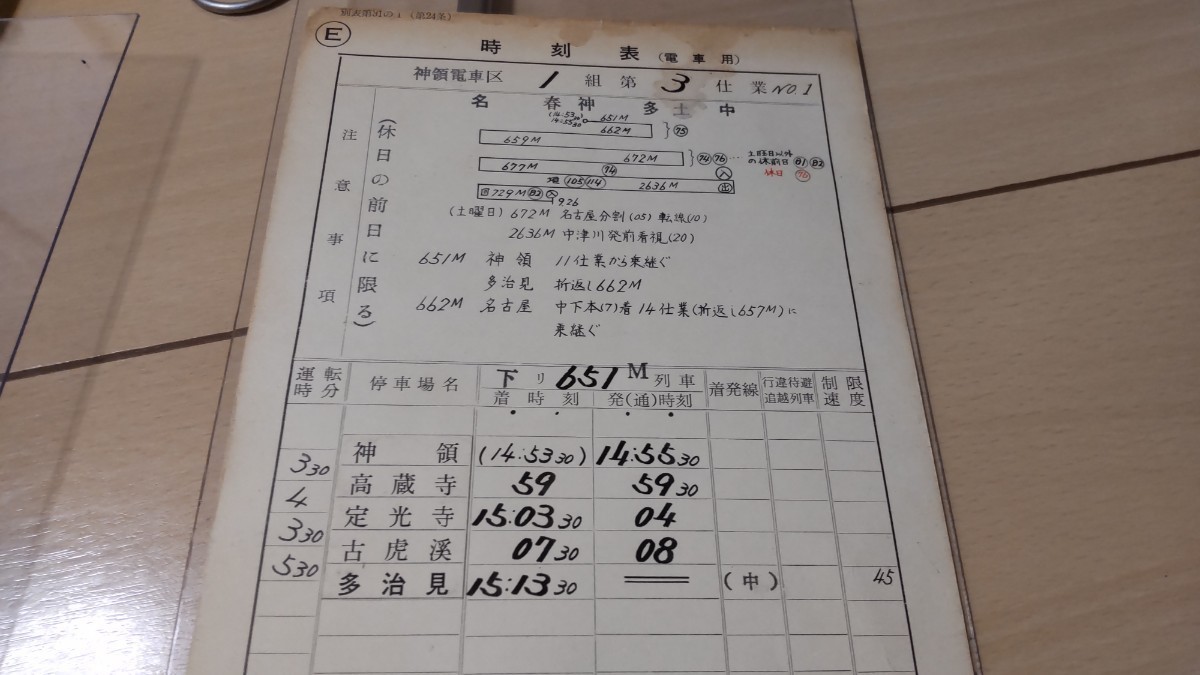 別表第31の1 (第24条)
Ⓔ
時刻表(電車用)
神領電車区 1 組第 3 仕業 NO.1
注意事項
(休日の前日に限る)
名 春 神 多 土 中
(14:53 30) 14:55 30 651M
662M }㊆
659M
672M }㊆㊆… 土曜日以外の休前日
677M
休日
2636M
729M
926
(土曜日) 672M 名古屋分割(05) 転線(10)
2636M 中津川発前看視(20)
651M 神領 11仕業から乗継ぐ
多治見 折返し662M
662M 名古屋 中下本(7)着 14仕業(折返し657M)に
乗継ぐ
運転時分 停車場名 下リ 651 M 列車 着発線 行違待避追越列車 制限速度
着時刻 発(通)時刻
神領 (14:53 30) 14:55 30
3 30
高蔵寺 59 59 30
4
定光寺 15:03 30 04
3 30
古虎溪 07 30 08
5 30
多治見 15:13 30 (中) 45